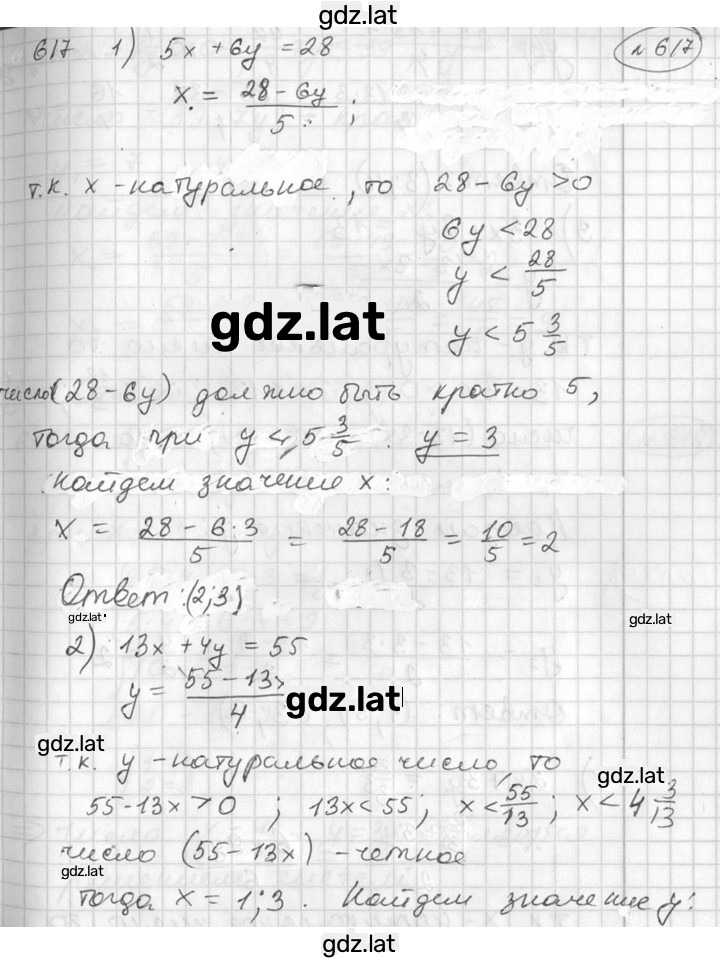 gdz.lat
617 1) 5x + 6y = 28
№ 617
x = (28 - 6y)/5 ;
т.к. x - натуральное, то 28 - 6y > 0
6y < 28
y < 28/5
gdz.lat
y < 5 3/5
число (28 - 6y) должно быть кратно 5,
тогда при y < 5 3/5 . y = 3
найдем значение x:
x = (28 - 6·3)/5 = (28 - 18)/5 = 10/5 = 2
Ответ: (2;3)
gdz.lat
2) 13x + 4y = 55
y = (55 - 13x)/4
gdz.lat
gdz.lat
т.к. y - натуральное число, то
gdz.lat
55 - 13x > 0 ; 13x < 55; x < 55/13 ; x < 4 3/13
число (55 - 13x) - четное
gdz.lat
тогда x = 1; 3. Найдем значение y:
gdz.lat